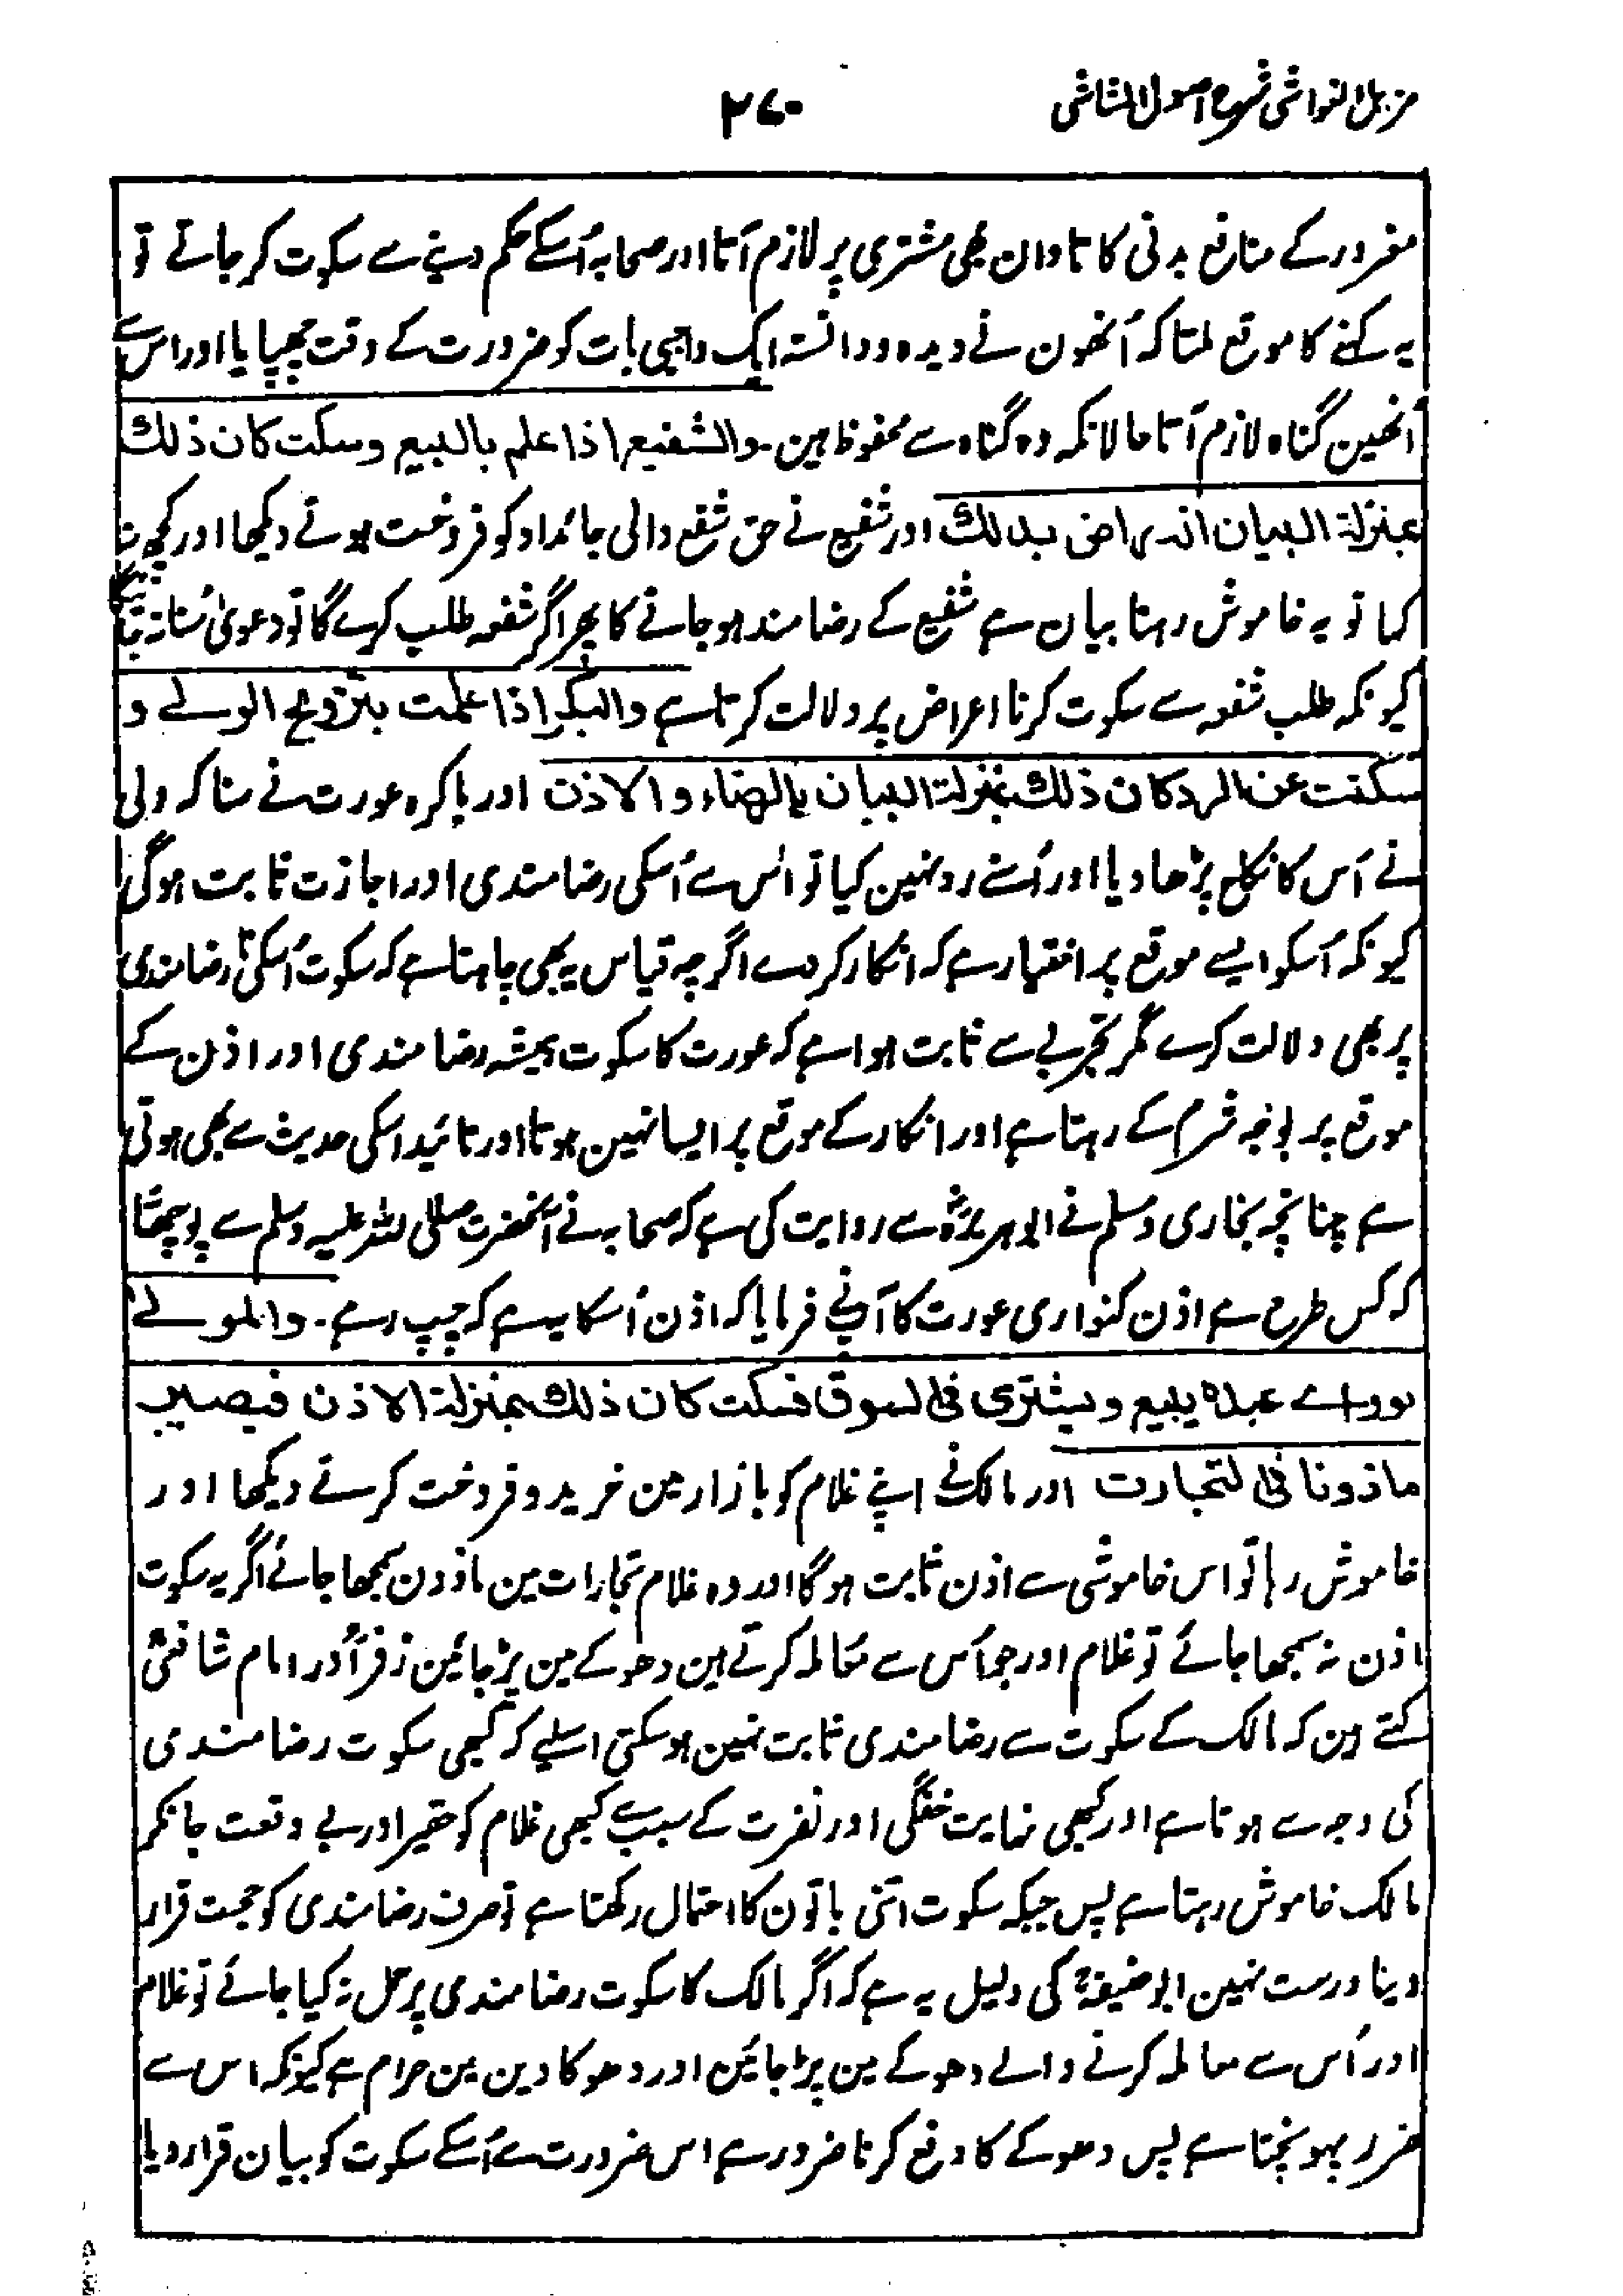 مزیل الغواشی شرح اصول الشاشی
۲۷۰
مغرور کے منافع بدنی کا تاوان بھی مشتری پر لازم آتا اور صحابہ اُسکے حکم دینے سے سکوت کر جاتے تو
یہ کہنے کا موقع ملتا کہ اُنھون نے دیدہ و دانستہ ایک واجبی بات کو ضرورت کے وقت چھپایا اور اس سے
اُنھین گناہ لازم آتا حالانکہ وہ گناہ سے محفوظ ہین۔ والشفیع اذا علم بالبیع وسکت کان ذلك
بمنزلة البیان انه راضی بذلك اور شفیع نے حق شفع والی جائداد کو فروخت ہوتے دیکھا اور کچھ نہ
کہا تو یہ خاموش رہنا بیان ہے شفیع کے رضامند ہو جانے کا پھر اگر شفعہ طلب کرے گا تو دعویٰ سُنا نہ جائیگا
کیونکہ طلب شفعہ سے سکوت کرنا اعراض پر دلالت کرتا ہے والبکر اذا علمت بتزویج الولے و
سکتت عن الرد کان ذلك بمنزلة البیان بالرضاء والاذن اور باکرہ عورت نے سنا کہ ولی
نے اُس کا نکاح پڑھا دیا اور اُسنے رد نہین کیا تو اس سے اُسکی رضامندی اور اجازت ثابت ہوگی
کیونکہ اُسکو ایسے موقع پر اختیار ہے کہ انکار کر دے اگرچہ قیاس یہ بھی چاہتا ہے کہ سکوت اُسکی نارضامندی
پر بھی دلالت کرے مگر تجربے سے ثابت ہوا ہے کہ عورت کا سکوت ہمیشہ رضامندی اور اذن کے
موقع پر بوجہ شرم کے رہتا ہے اور انکار کے موقع پر ایسا نہین ہوتا اور تائید اسکی حدیث سے بھی ہوتی
ہے چنانچہ بخاری و مسلم نے ابوہریرہؓ سے روایت کی ہے کہ صحابہ نے آنحضرت صلی اللہ علیہ وسلم سے پوچھا
کہ کس طرح ہے اذن کنواری عورت کا آپنے فرمایا کہ اذن اُسکا یہ ہے کہ چپ رہے۔ والمولے
عبدہ یبیع ویشتری فی السوق فسکت کان ذلك بمنزلة الاذن فیصیر
ماذونا فی التجارت اور مالک نے اپنے غلام کو بازار مین خرید و فروخت کرتے دیکھا اور
خاموش رہا تو اس خاموشی سے اذن ثابت ہوگا اور وہ غلام تجارات مین ماذون سمجھا جائے اگر یہ سکوت
اذن نہ سمجھا جائے تو غلام اور جو اُس سے معاملہ کرتے ہین دھوکے مین پڑ جائین زفرؒ اور امام شافعیؒ
کہتے ہین کہ مالک کے سکوت سے رضامندی ثابت نہین ہوسکتی اسلیے کہ کبھی سکوت رضامندی
کی وجہ سے ہوتا ہے اور کبھی نہایت خفگی اور نفرت کے سبب سے کبھی غلام کو حقیر اور بے وقعت جانکر
مالک خاموش رہتا ہے پس جبکہ سکوت اتنی باتون کا احتمال رکھتا ہے تو صرف رضامندی کو حجت قرار
دینا درست نہین ابوحنیفہؒ کی دلیل یہ ہے کہ اگر مالک کا سکوت رضامندی پر حمل نہ کیا جائے تو غلام
اور اُس سے معاملہ کرنے والے دھوکے مین پڑ جائین اور دھوکا دین مین حرام ہے کیونکہ اس سے
ضرر پہونچتا ہے پس دھوکے کا دفع کرنا ضرور ہے اس ضرورت سے اُسکے سکوت کو بیان قرار دیا